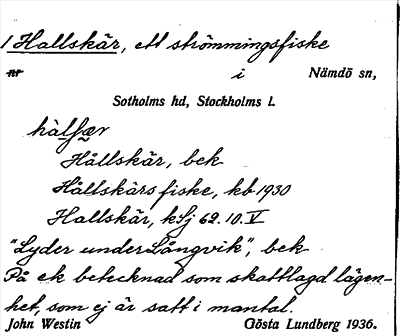 1 Hallskär, ett strömmingsfiske
nr i Nämdö sn,
Sotholms hd, Stockholms l.
hàlʃær
Hållskär, bek
Hållskärs fiske, kb 1930
Hallskär, kSj 62.10.V
"Lyder under Långvik", bek
På ek betecknad som skattlagd lägen-
het, som ej är satt i mantal.
John Westin Gösta Lundberg 1936.